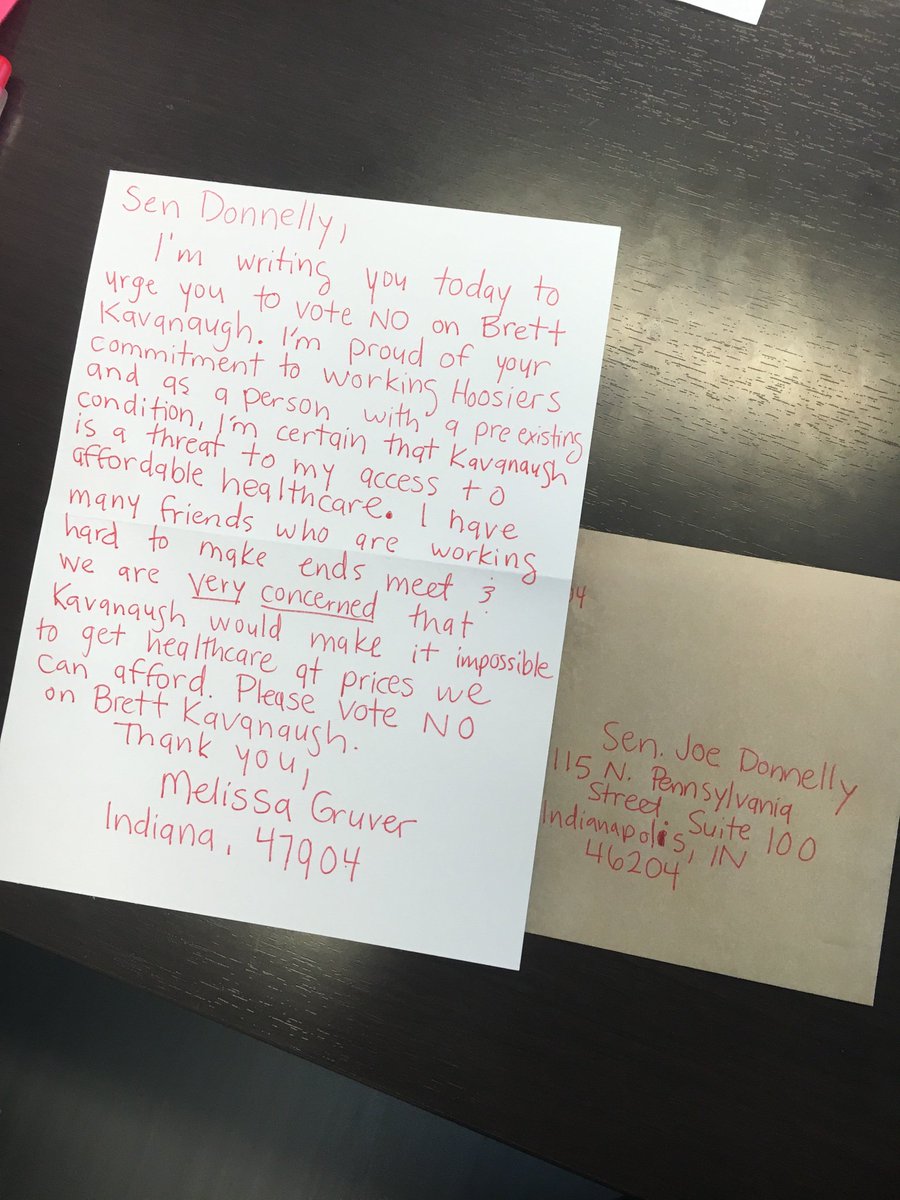 Sen Donnelly,
I'm writing you today to
urge you to vote NO on Brett
Kavanaugh. I'm proud of your
commitment to working Hoosiers
and as a person with a pre existing
condition, I'm certain that Kavanaugh
is a threat to my access to
affordable healthcare. I have
many friends who are working
hard to make ends meet &
we are very concerned that
Kavanaugh would make it impossible
to get healthcare at prices we
can afford. Please vote NO
on Brett Kavanaugh.
Thank you,
Melissa Gruver
Indiana, 47904
Sen. Joe Donnelly
115 N. Pennsylvania
Street, Suite 100
Indianapolis, IN
46204